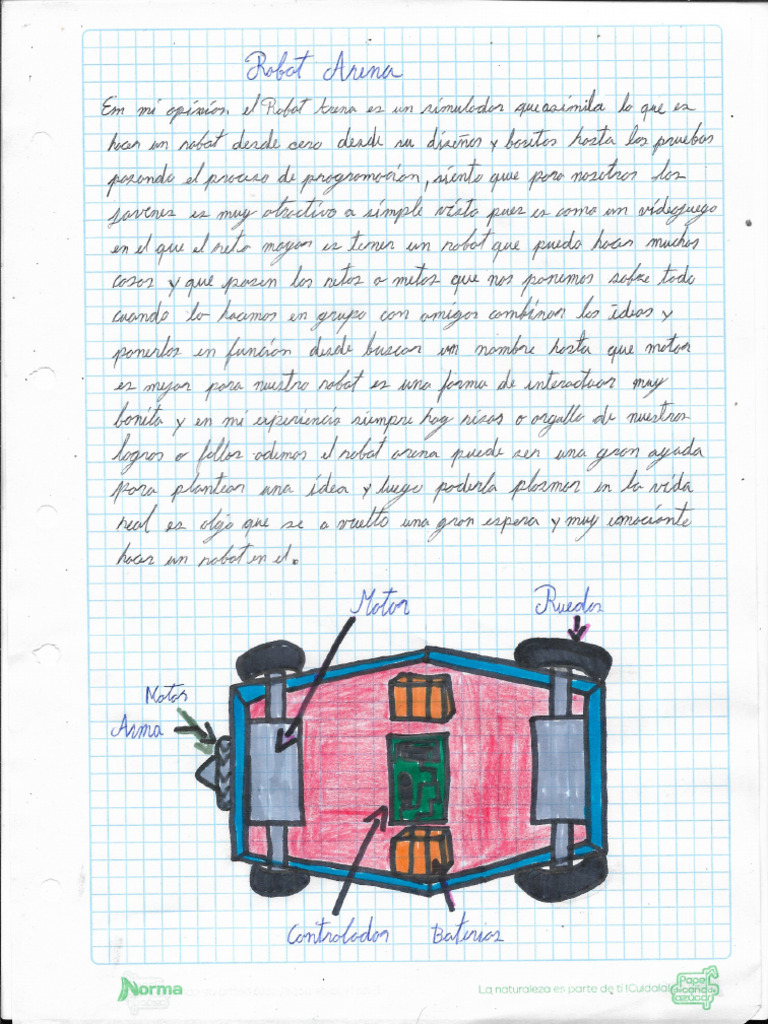 Robot Arena
Em mi opinion. el Robot Arena es un simulador que asimila lo que es
hacer un robot desde cero desde su diseños y bosetos hasta las pruebas
pasando el proceso de programación, siento que para nosotros los
jovenes es muy atractivo a simple vista pues es como un videojuego
en el que el reto mayor es tener un robot que pueda hacer muchas
cosas y que pasen los retos o metas que nos ponemos sobre todo
cuando lo hacemos en grupo con amigos combinar las ideas y
ponerlas en función desde buscar un nombre hasta que motor
es mejor para nuestro robot es una forma de interactuar muy
bonita y en mi experiencia siempre hay risas o orgullo de nuestros
logros o fallos ademas el robot arena puede ser una gran ayuda
para plantear una idea y luego poderla plasmar en la vida
real es algo que se a vuelto una gran espera y muy emocionte
hacer un robot en el.
Motor
Ruedas
Motor
Arma
Controlador
Baterias
Norma
La naturaleza es parte de ti !Cuidala!
Papel
caña de
azúcar